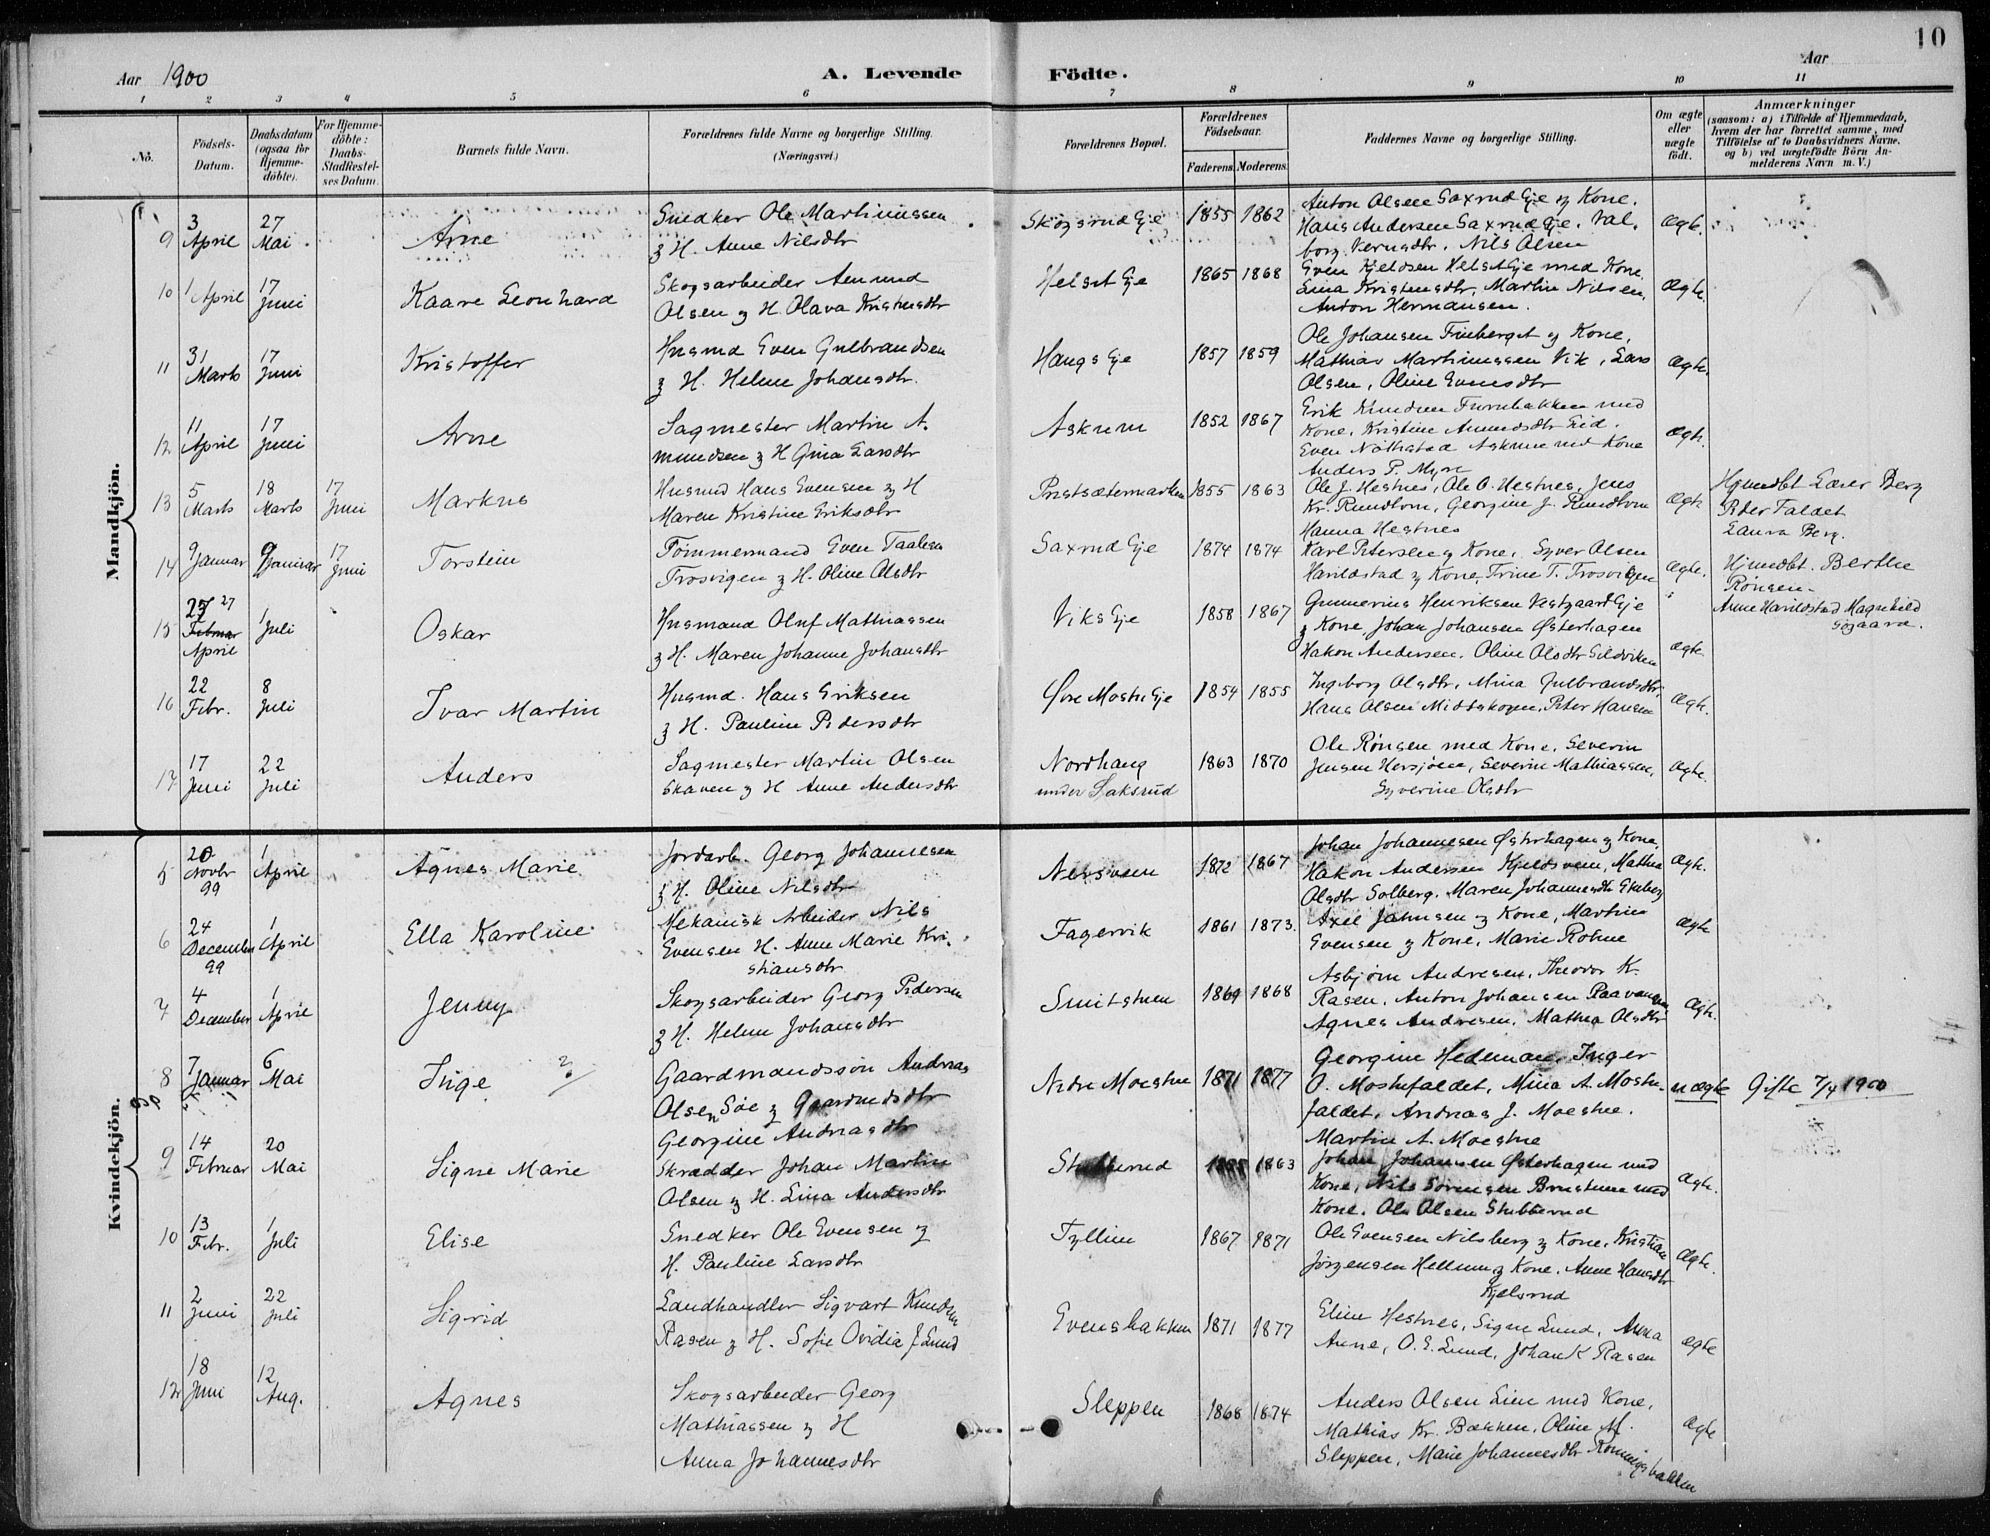 10
Aar 1900
A. Levende Födte.
Aar
1 2 3 4 5 6 7 8 9 10 11
No.
Födsels-Datum.
Daabsdatum (ogsaa for Hjemme-döbte).
For Hjemme-döbte: Daabs-Stadfestel-ses Datum.
Barnets fulde Navn.
Forældrenes fulde Navne og borgerlige Stilling. (Næringsvei.)
Forældrenes Bopæl.
Forældrenes Födselsaar.
Faderens. Moderens.
Faddernes Navne og borgerlige Stilling.
Om ægte eller uægte födt.
Anmærkninger
(saasom: a) i Tilfælde af Hjemmedaab, hvem der har forrettet samme, med Tilföielse af to Daabsvidners Navne, og b) ved uægtefödte Börn An-melderens Navn m. V.)
Mandkjön.
9 3 April 27 Mai Arne Snedker Ole Martinussen
& H. Anne Nilsdtr
Skögsrud Eje 1855 1862 Anton Olsen Saxrud Eje og Kone,
Hans Andersen Saxrud Eje, Val-
borg, Nils Olsen
Ægte.
10 1 April 17 Juni Kaare Leonhard Skogsarbeider Amund
Olsen og H. Olava Kristensdtr
Helset Eje 1865 1868 Even Kjeldsen Helset Eje med Kone,
Lina Kristensdtr, Martin Nilsen,
Anton Hermansen.
Ægte.
11 31 Marts 17 Juni Kristoffer Husmd Even Gulbrandsen
& H. Helene Johansdtr.
Haugs Eje 1857 1859 Ole Johansen Fineberget og Kone,
Mathias Martinussen Vik, Lars
Olsen, Oline Evensdtr
Ægte.
12 11 April 17 Juni Arne Sagmester Martin A-
mundsen & H Gina Larsdtr
Askrum 1852 1867 Erik Knudsen Furubakken med
Kone, Kristine Amundsdtr Eid.
Even Askrum med Kone
Anders P. Myre
Ægte.
13 5 Marts 18 Marts 17 Juni Markus Husmd Hans Evensen & H
Maren Kristine Eriksdtr
Prestsætermarken 1855 1863 Ole J. Hestnes, Ole O. Hestnes, Jens
Kr. Rundtom, Georgine J. Rundtom
Hanna Hestnes
Ægte Hjemdbt Lærer Berg
Peder Faldet
Laura Berg.
14 9 Januar 9 Januar 17 Juni Torstein Tömmermand Even Taalesen
Trosvigen & H. Oline Olsdtr
Saxrud Eje 1874 1874 Karl Petersen og Kone, Syver Olsen
Harildstad & Kone, Trine T. Trosvigen
Ægte. Hjemdbt. Berthe
Rönsen.
Anne Harildstad Magnhild
15 27 Februar April 1 Juli Oskar Husmand Oluf Mathiassen
& H. Maren Johanne Johansdtr
Viks Eje 1858 1867 Gunnerius Henriksen Vestgaard Eje
& Kone Johan Johansen Østerhagen
Hakon Andersen, Oline Olsdtr Sildviken
Ægte.
16 22 Febr. 8 Juli Ivar Martin Husmd. Hans Eriksen
& H. Pauline Pedersdtr
Øvre Moestue Eje 1854 1855 Ingeborg Olsdtr, Mina Gulbrandsdtr,
Hans Olsen Midtskogen, Peter Hansen
Ægte.
17 17 Juni 22 Juli Anders Sagmester Martin Olsen
Skaven & H Anne Andersdtr
Nordhaug
under Saksrud
1863 1870 Ole Rönsen med Kone, Severin
Jensen Hersjöen, Severin Mathiassen,
Syverine Olsdtr
Ægte.
Kvindekjön.
5 20 Novbr 99 1 April Agnes Marie Jordarb. Georg Johannesen
& H. Oline Nilsdtr
1872 1867 Johan Johannesen Østerhagen & Kone,
Hakon Andersen Kjeldsveen, Mathea
Olsdtr Solberg, Maren Johannesdtr
Ægte.
6 24 December 99 1 April Ella Karoline Mekanisk Arbeider Nils
Evensen H. Anne Marie Kri-
stiansdtr
Fagervik 1861 1873. Axel Jahnsen & Kone, Martin
Evensen & Kone, Marie Rohne
Ægte
7 4 December 1 April Jenny Skogsarbeider Georg Pedersen
& H. Helene Johansdtr
Smitstuen 1869 1868 Asbjørn Andresen, Theodor K.
Rasen, Anton Johansen
Agnes Andresen, Mathea Olsdtr
Ægte.
8 7 Januar 6 Mai Inge Gaardmandssön Andreas
Olsen Söe & Gaardmdsdtr
Georgine Andreasdtr
Nedre Moestue 1871 1877 Georgine Hedeman, Inger
O. Moestuefaldet, Mina A. Moestue-
faldet, Andreas J. Moestue.
Martin A. Moestue
uægte Gifte 7/4 1900
9 14 Februar 20 Mai Signe Marie Skrædder Johan Martin
Olsen & H. Lina Andersdtr
Stubberud 1855 1863 Johan Johansen Østerhagen med
Kone, Nils Sörensen med
Kone. Ole Olsen Stubberud
Ægte.
10 13 Febr. 1 Juli Elise Snedker Ole Evensen &
H. Pauline Larsdtr
Tyllien 1867 1871 Ole Evensen Nilsberg & Kone, Kristian
Jörgensen Hellum & Kone, Anne Hansdtr
Kjelsrud
Ægte.
11 2 Juni 22 Juli Sigrid Landhandler Sigvart Knudsen
Rasen & H. Sofie Ovidie J Lund
Evensbakken 1871 1877 Eline Hestnes, Signe Lund, Anna
Aune, O. E. Lund, Johan K Rasen
Ægte
12 18 Juni 12 Aug. Agnes Skogsarbeider Georg
Mathiassen & H
Anna Johannesdtr
Sleppen 1868 1874 Anders Olsen Lien med Kone,
Mathias Kr. Bakken, Oline M.
Sleppen, Marie Johannesdtr
Ægte